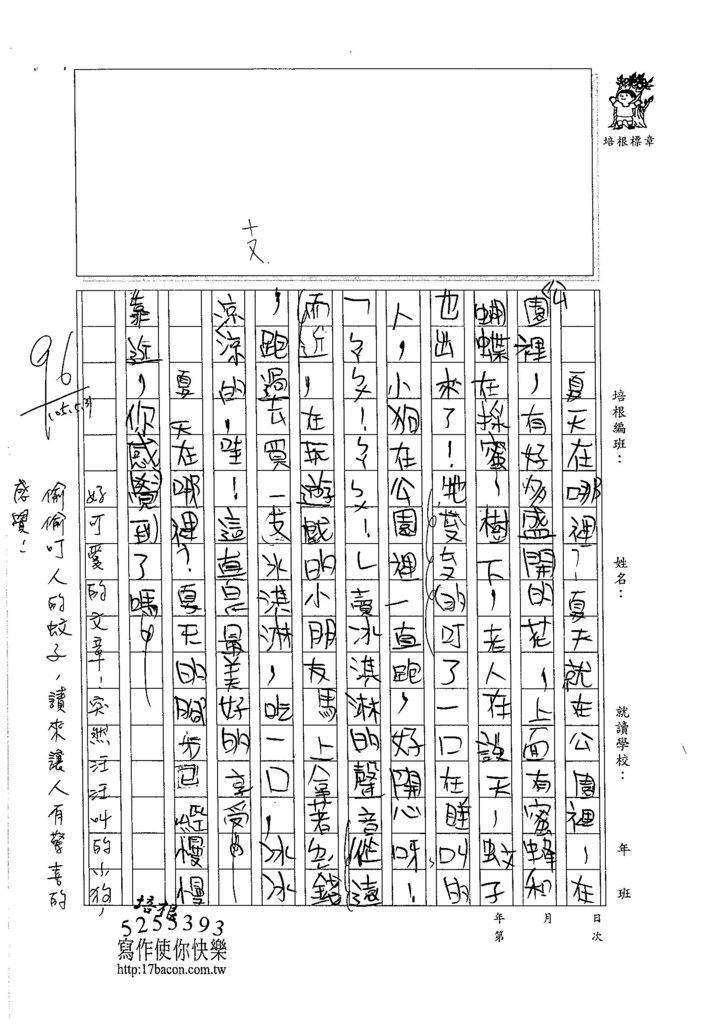 培根標章
培根編班：
姓名：
就讀學校：
年 班
年 月 日
第 次
夏天在哪裡？夏天就在公園裡，在
公
園裡，有好多盛開的花，上面有蜜蜂和
蝴蝶在採蜜，樹下，老人在談天，蚊子
也出來了！牠 的叮了一口在睡叫的
人，小狗在公園裡一直跑，好開心呀！
「ㄅㄆ！ㄅㄆ！」賣冰淇淋的聲音從遠
而近，在玩遊戲的小朋友馬上拿著 錢
，跑過去買一支冰淇淋，吃一口，冰冰
涼涼的，哇！這真是最美好的享受。
夏天在哪裡？夏天的腳步已經慢慢
靠近，你感覺到了嗎？
好可愛的文章！突然汪汪叫的小狗，
偷偷叮人的蚊子，讀來讓人有驚喜的
感覺！
96
105.5.31
培根
5255393
寫作使你快樂
http:17bacon.com.tw